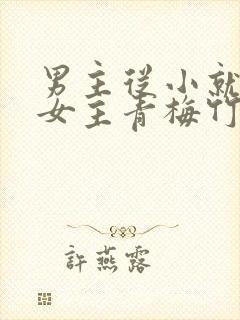 男主從小就
女主青梅竹
許燕露